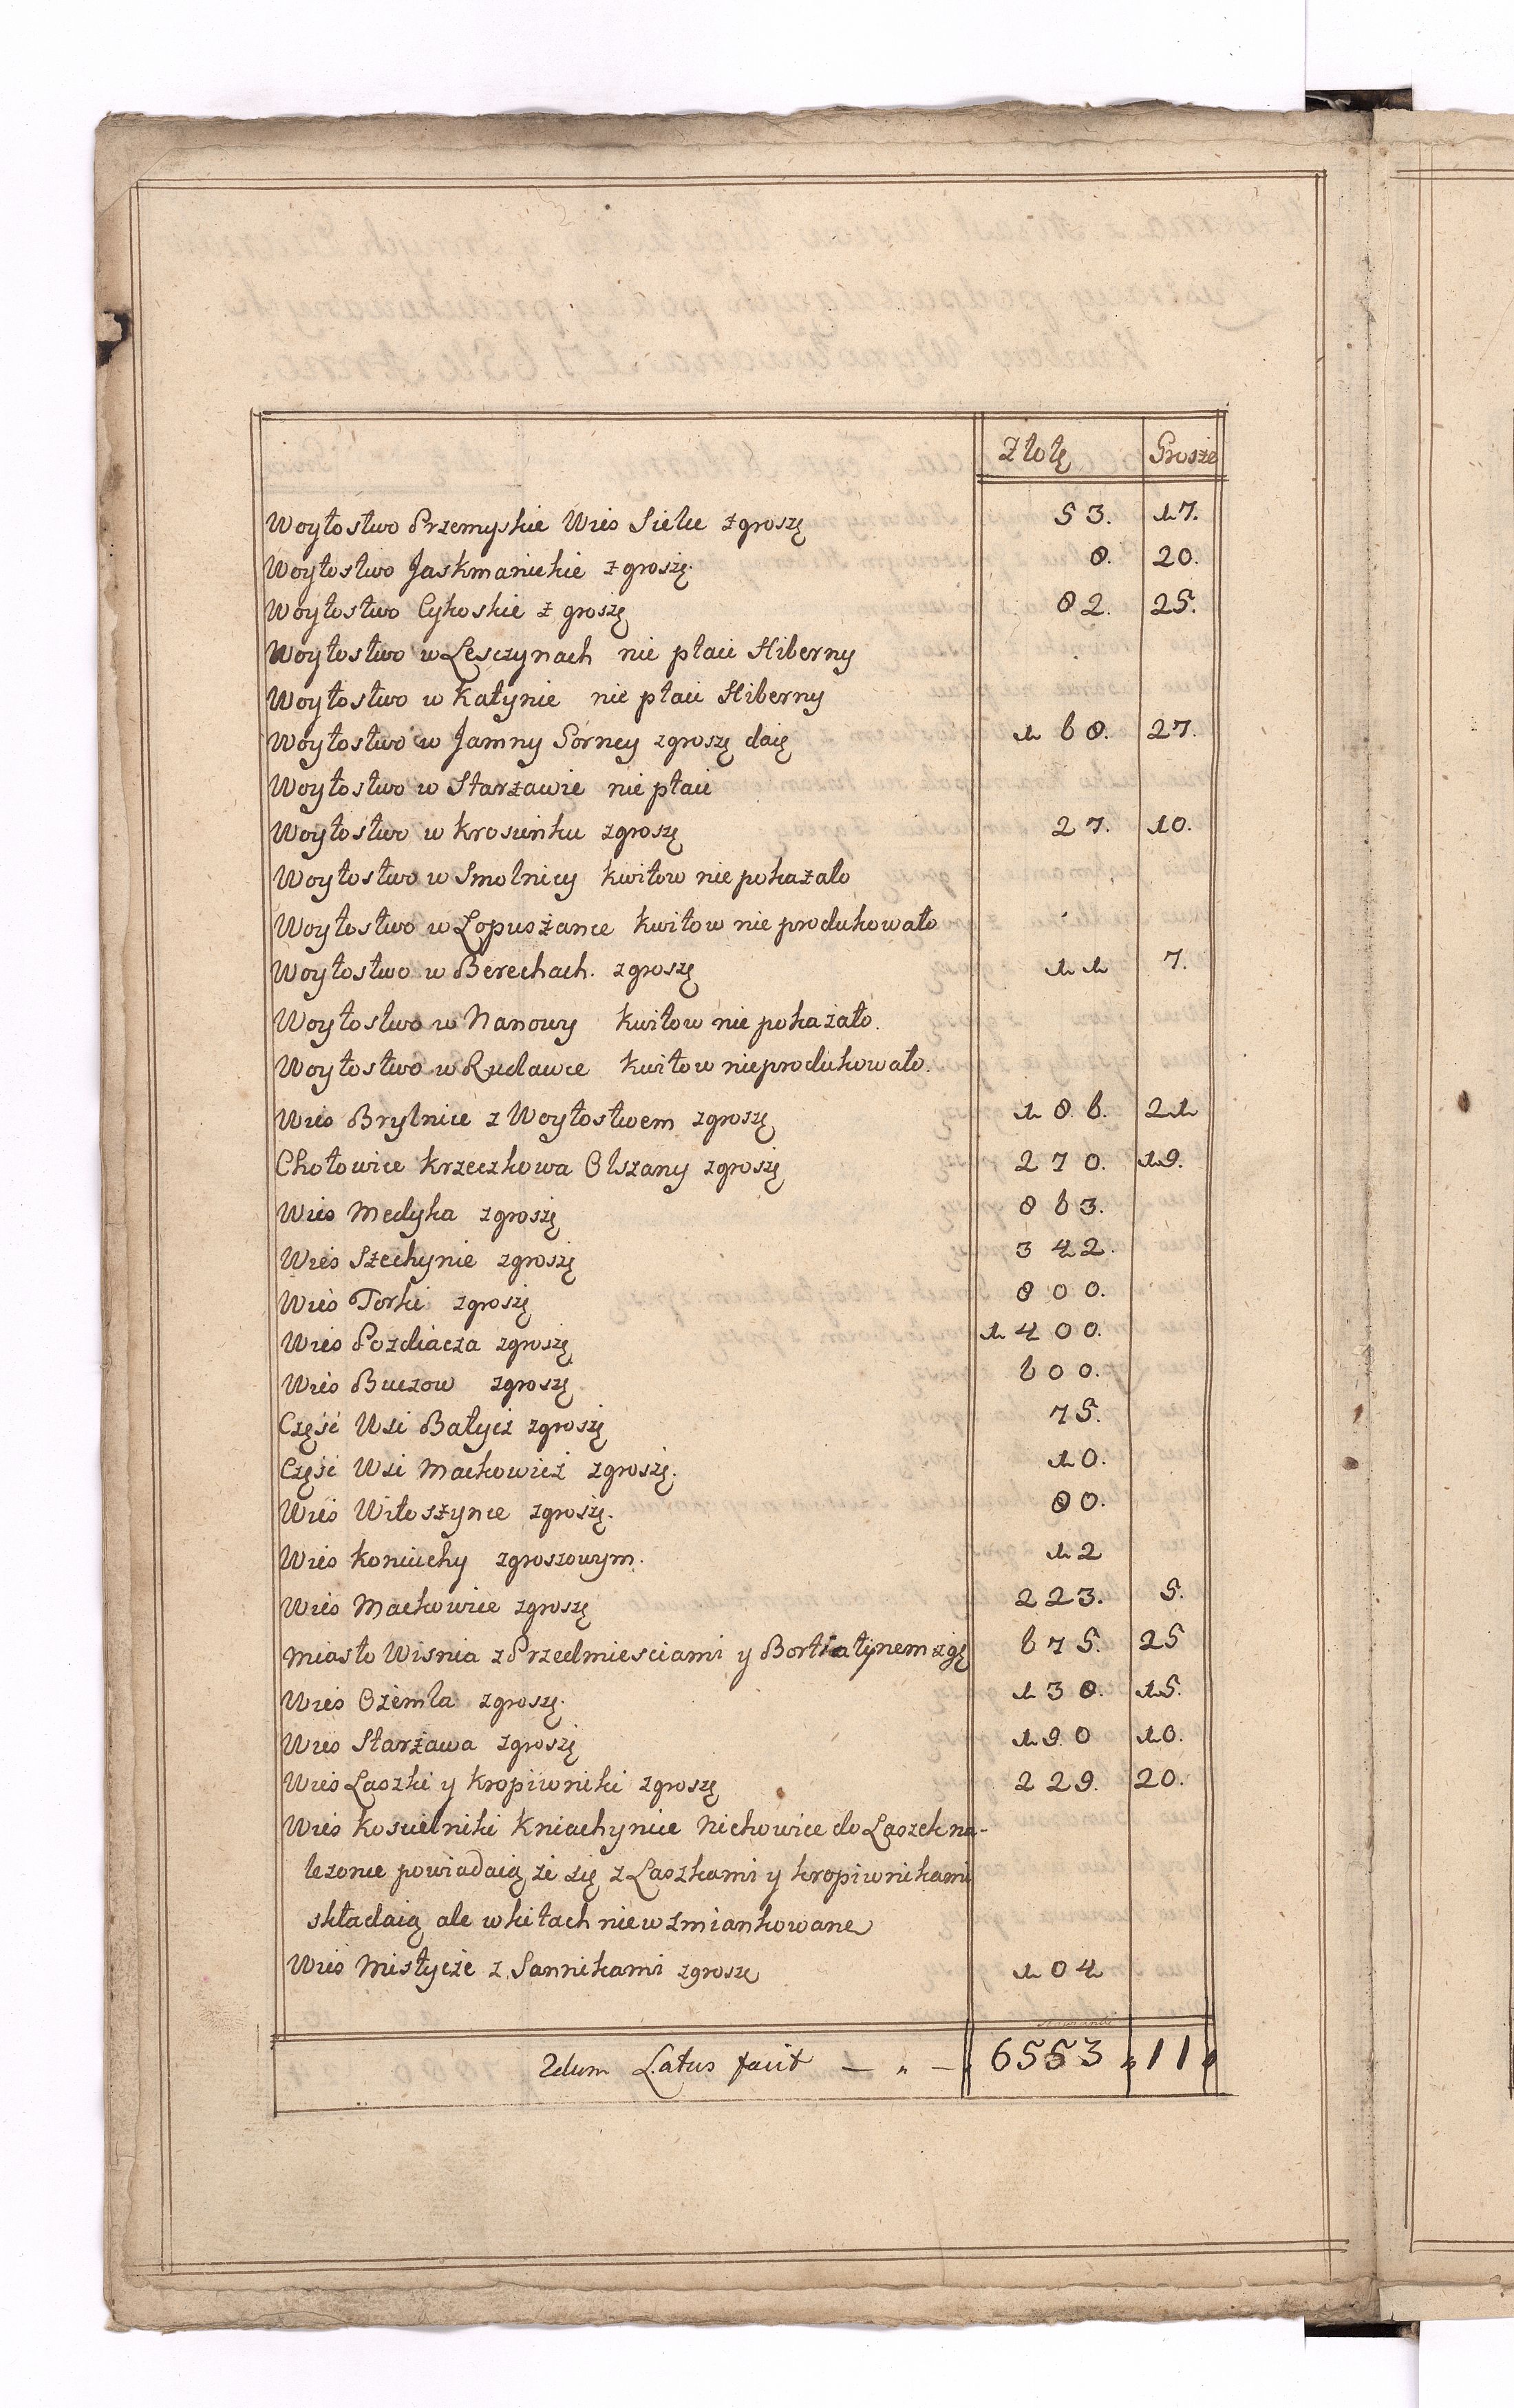 Złotę Grosze
Woytostwo Przemyskie Wies Sielce z groszę 53. 17.
Woytostwo Jaskmanickie z groszę. 8. 20.
Woytostwo Cykoskie z groszę 82. 25.
Woytostwo w Lesczynach nie płaci Hiberny
Woytostwo w Katynie nie płaci Hiberny
Woytostwo w Jamny Gorney z groszę daię 168. 27.
Woytostwo w Starzawie nie płaci
Woytostwo w Krosienku z groszę 27. 10.
Woytostwo w Smolnicy kwitow nie pokazało
Woytostwo w Lopuszance kwitow nie produkowało
Woytostwo w Berechach. z groszę 11 7.
Woytostwo w Nanowy kwitow nie pokazało.
Woytostwo w Rudawce kwitow nie produkowało.
Wies Brylnice z Woytostwem z groszę 186. 21
Chołowice Krzeczkowa Olszany z groszę 270. 19.
Wies Medyka z groszę 863.
Wies Szechynie z groszę 342.
Wies Torki z groszę 800.
Wies Pozdiacza z groszę 1400.
Wies Bucow z groszę 600.
Część Wsi Batycz z groszę 75.
Część Wsi Mackowicz z groszę. 10.
Wies Witoszynce z groszę. 80.
Wies Koniuchy z groszowym. 12
Wies Mackowice z groszę 223. 5.
Miasto Wisnia z Przedmiesciami y Bortiatynem z gę 675. 25
Wies Ożemla z groszę. 138. 15.
Wies Starzawa z groszę 190 10.
Wies Laszki y Kropiwniki z groszę 229. 20.
Wies Koscielniki Kniachynice Nichowice do Laszek na-
lezonce powiadaią ze się z Laszkami y Kropiwnikami
składaią ale w kitach nie wzmiankowane
Wies Mistycze z Sannikami z grosze 104
Latus facit — " — 6553 " 11 "